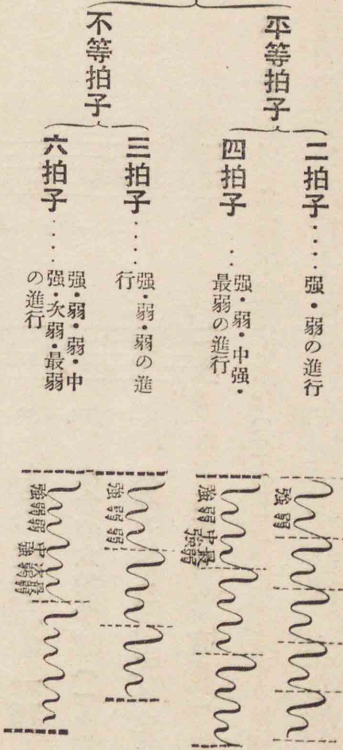 平等拍子
二拍子‥‥強・弱の進行
四拍子‥強・弱・中強・
最弱の進行
不等拍子
三拍子‥‥強・弱・弱の進
行
六拍子‥‥強・弱・弱・中
強・次弱・最弱
の進行
強 弱
強 弱 中強 最弱
強 弱 弱
強 弱 弱 中強 次弱 最弱